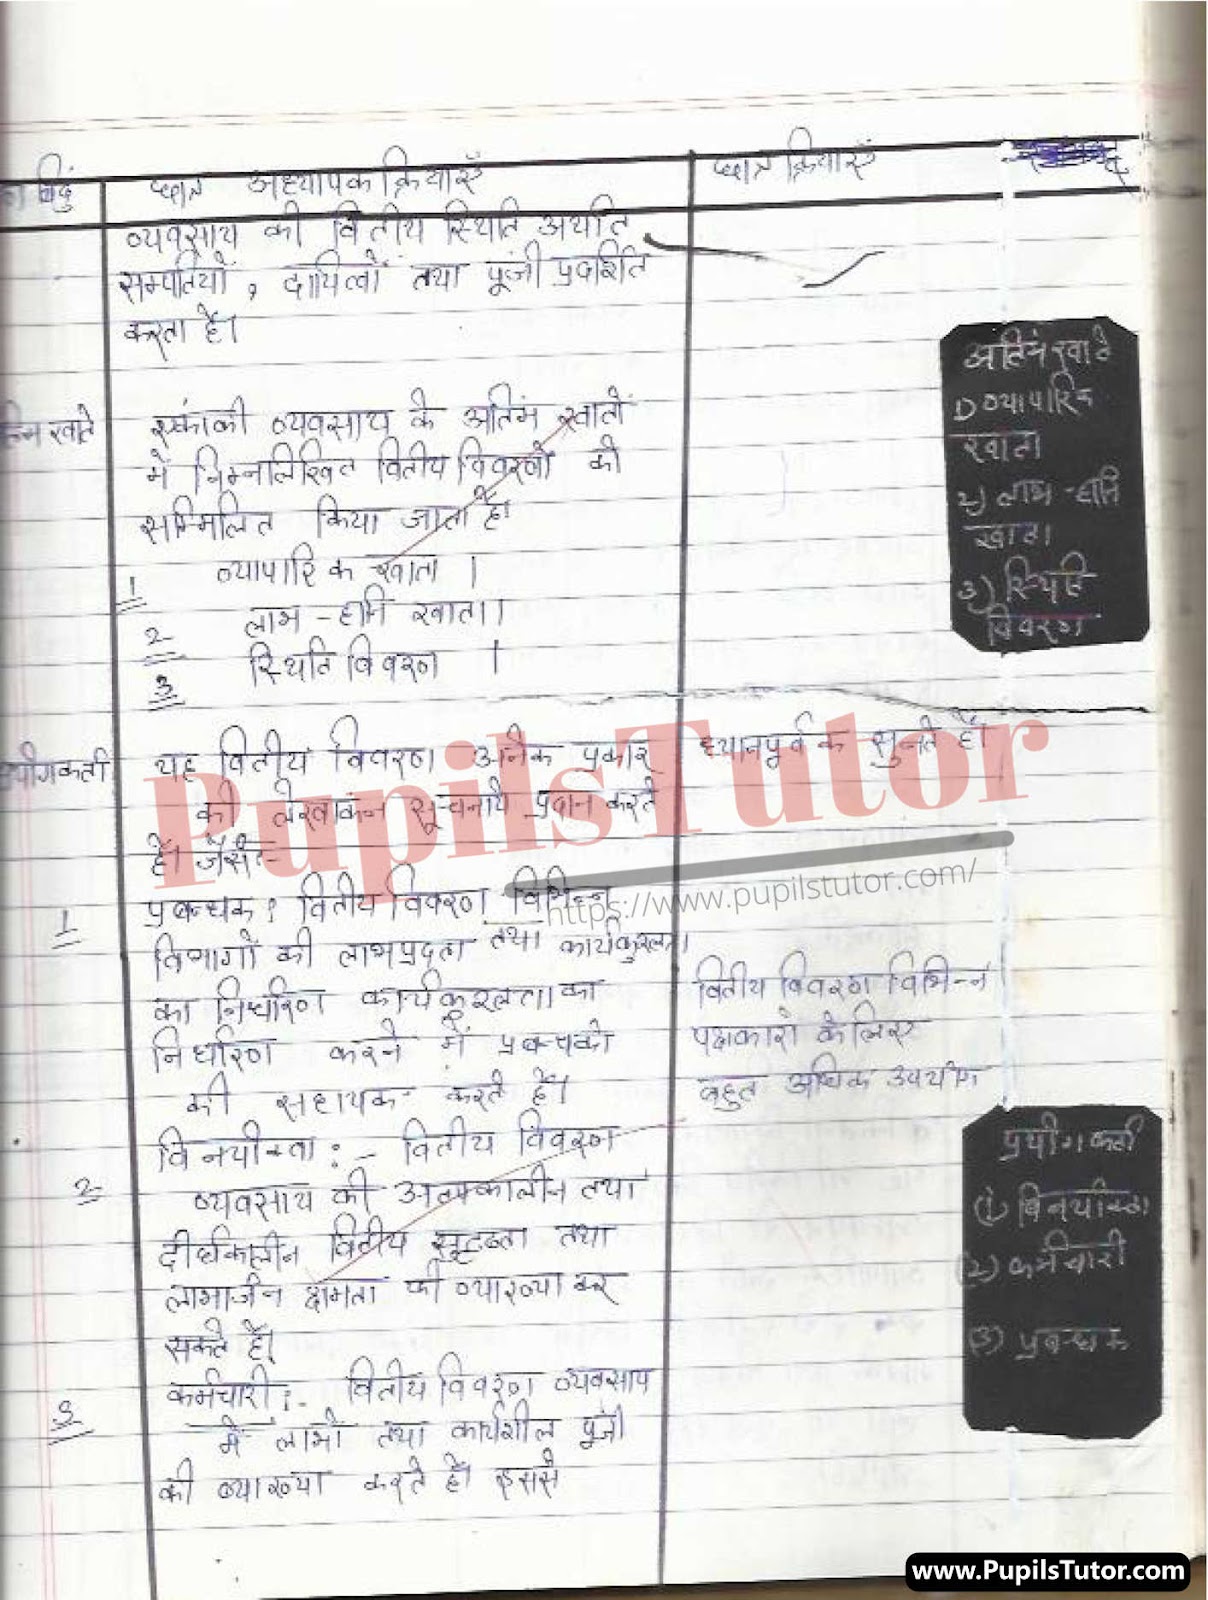 बिंदु
छात्र अध्यापक क्रियाएँ
छात्र क्रियाएँ
व्यवसाय की वित्तीय स्थिति अर्थात
सम्पतियों, दायित्वों तथा पूंजी प्रदर्शित
करता है।
खाते
व्यवसाय के अतिमं खातों
में निम्नलिखित वितीय विवरणों को
सम्मिलित किया जाता है।
1 व्यापारिक खाता ।
2 लाभ - हानि खाता।
3 स्थिति विवरण ।
अतिमं खाते
1) व्यापारिक
खाता।
2) लाभ - हानि
खाता।
3) स्थिति
विवरण
योगकर्ता
यह वितीय विवरण अनेक प्रकार
की लेखाकंन सूचनाये प्रदान करते
है। जैसे:-
1 प्रबन्धक : वितीय विवरण विभिन्न
विभागों की लाभप्रदता तथा कार्यकुशलता
का निर्धारण कार्यकुशलता का
निर्धारण करने में प्रबन्धको
की सहायक करते हैं।
2 विनयोक्ता :- वितीय विवरण
व्यवसाय की अल्पकालीन तथा
दीर्घकालीन वितीय सुदृढता तथा
लाभार्जन क्षमता की व्याख्या कर
सकते हैं।
3 कर्मचारी :- वितीय विवरण व्यवसाय
में लाभो तथा कार्यशील पूंजी
की व्याख्या करते है। इससे
ध्यानपूर्वक सुनते हैं।
वितीय विवरण विभिन्न
पक्षकारो के लिए
बहुत अधिक उपयोग
प्रयोगकर्ता
(1) विनयोक्ता
(2) कर्मचारी
(3) प्रबन्धक
PupilsTutor
https://www.pupilstutor.com/
www.PupilsTutor.com